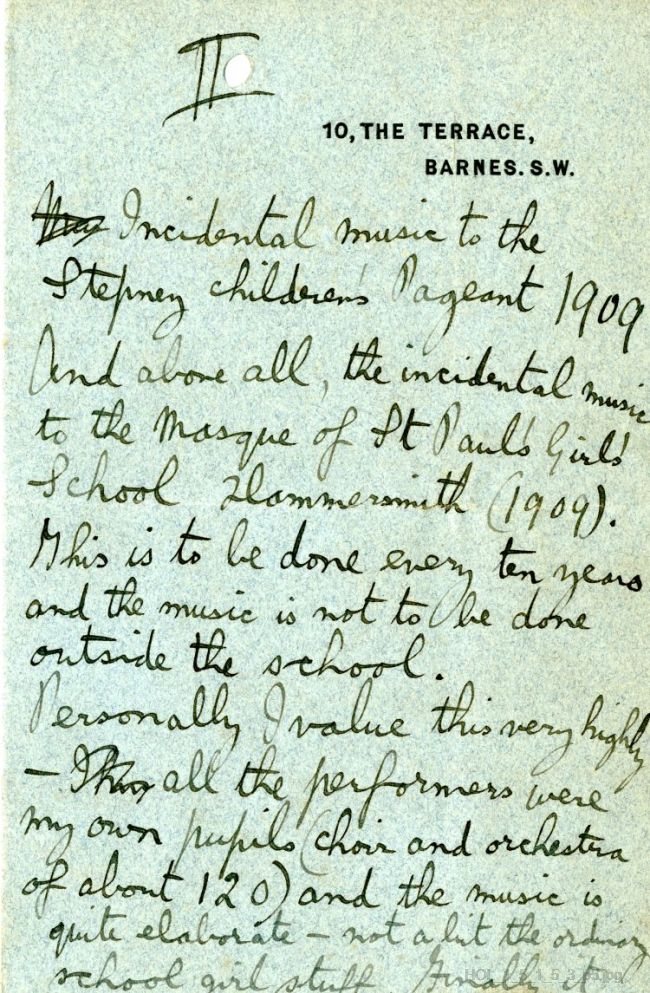 II
10, THE TERRACE,
BARNES. S.W.
Incidental music to the
Stepney children's Pageant 1909
And above all, the incidental music
to the Masque of St Paul's Girls'
School Hammersmith (1909).
This is to be done every ten years
and the music is not to be done
outside the school.
Personally I value this very highly
– all the performers were
my own pupils (choir and orchestra
of about 120) and the music is
quite elaborate – not a bit the ordinary
school girl stuff. Finally it